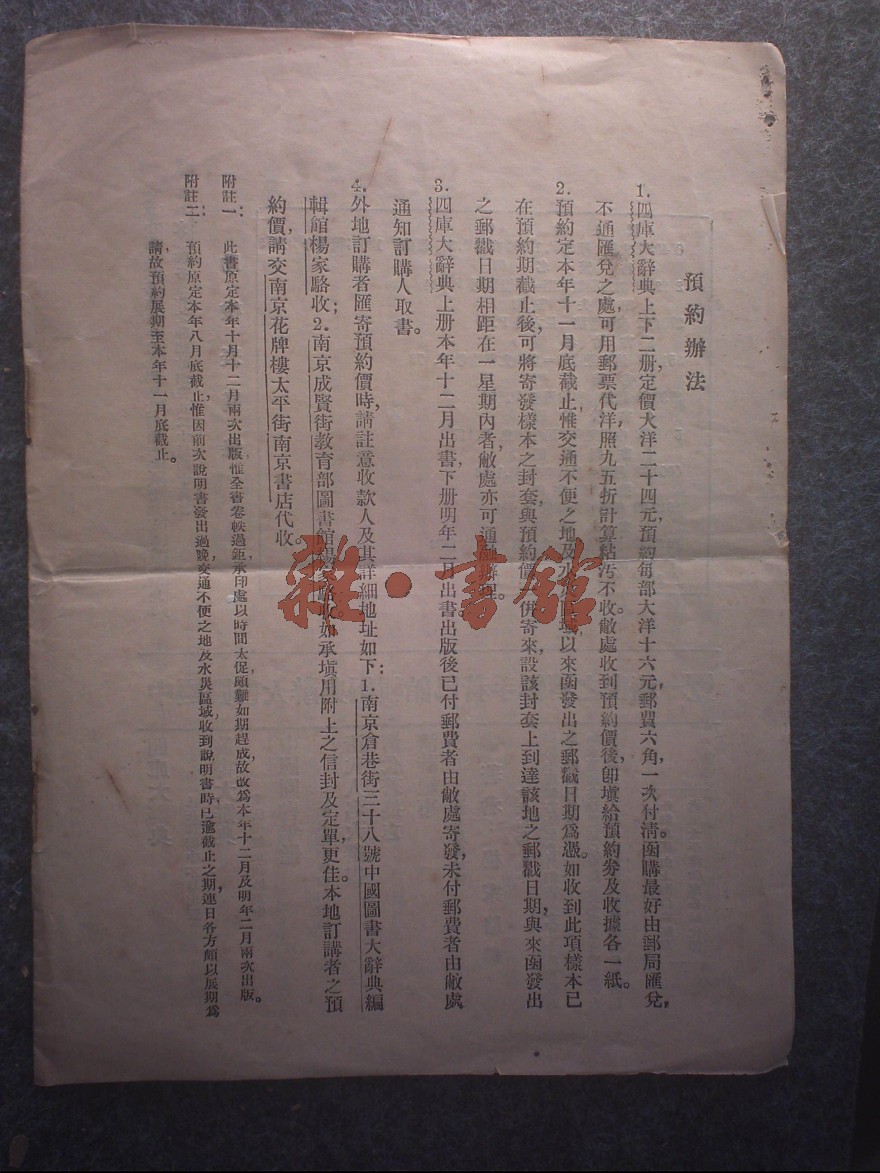 預約辦法
1. 四庫大辭典上下二册，定價大洋二十四元，預約每部大洋十六元，郵費六角，一次付清。函購最好由郵局匯兌，
不通匯兌之處，可用郵票代洋，照九五折計算，粘汚不收。敝處收到預約價後，卽塡給預約券及收據各一紙。
2. 預約定本年十一月底截止，惟交通不便之地及水災區域，以來函發出之郵戳日期爲憑。如收到此項樣本已
在預約期截止後，可將寄發樣本之封套與預約價一併寄來，設該封套上到達該地之郵戳日期，與來函發出
之郵戳日期相距在一星期內者，敝處亦可通融辦理。
3. 四庫大辭典上册本年十二月出書，下册明年二月出書。出版後已付郵費者由敝處寄發，未付郵費者由敝處
通知訂購人取書。
4. 外地訂購者匯寄預約價時，請註意收款人及其詳細地址如下：1. 南京倉巷街三十八號中國圖書大辭典編
輯館楊家駱收；2. 南京成賢街教育部圖書館楊家駱收。如承塡用附上之信封及定單，更佳。本地訂講者之預
約價，請交南京花牌樓太平街南京書店代收。
附註一：此書原定本年十月十二月兩次出版，惟全書卷帙過鉅，承印處以時間太促，頗難如期趕成，故改爲本年十二月及明年二月兩次出版。
附註二：預約原定本年八月底截止，惟因前次說明書發出過晚，交通不便之地及水災區域，收到說明書時，已逾截止之期，連日各方頗以展期爲
請，故預約展期至本年十一月底截止。
雜·書館